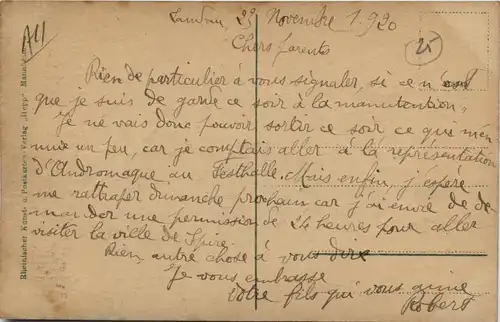 All
25
Landau, 23 Novembre 1920
Chers parents
Rien de particulier à vous signaler, si ce n'est
que je suis de garde ce soir à la manutention.
Je ne vais donc pouvoir sortir ce soir ce qui m'en
nuie un peu, car je comptais aller à la représentation
d'Andromaque au Festhalle. Mais enfin, j'espère
me rattraper dimanche prochain car j'ai envie de de
mander une permission de 24 heures pour aller
visiter la ville de Spire.
Rien autre chose à vous dire
Je vous embrasse
Votre fils qui vous aime
Robert
Rheinischer Kunst- u. Postkarten-Verlag "Hepp" Mannheim